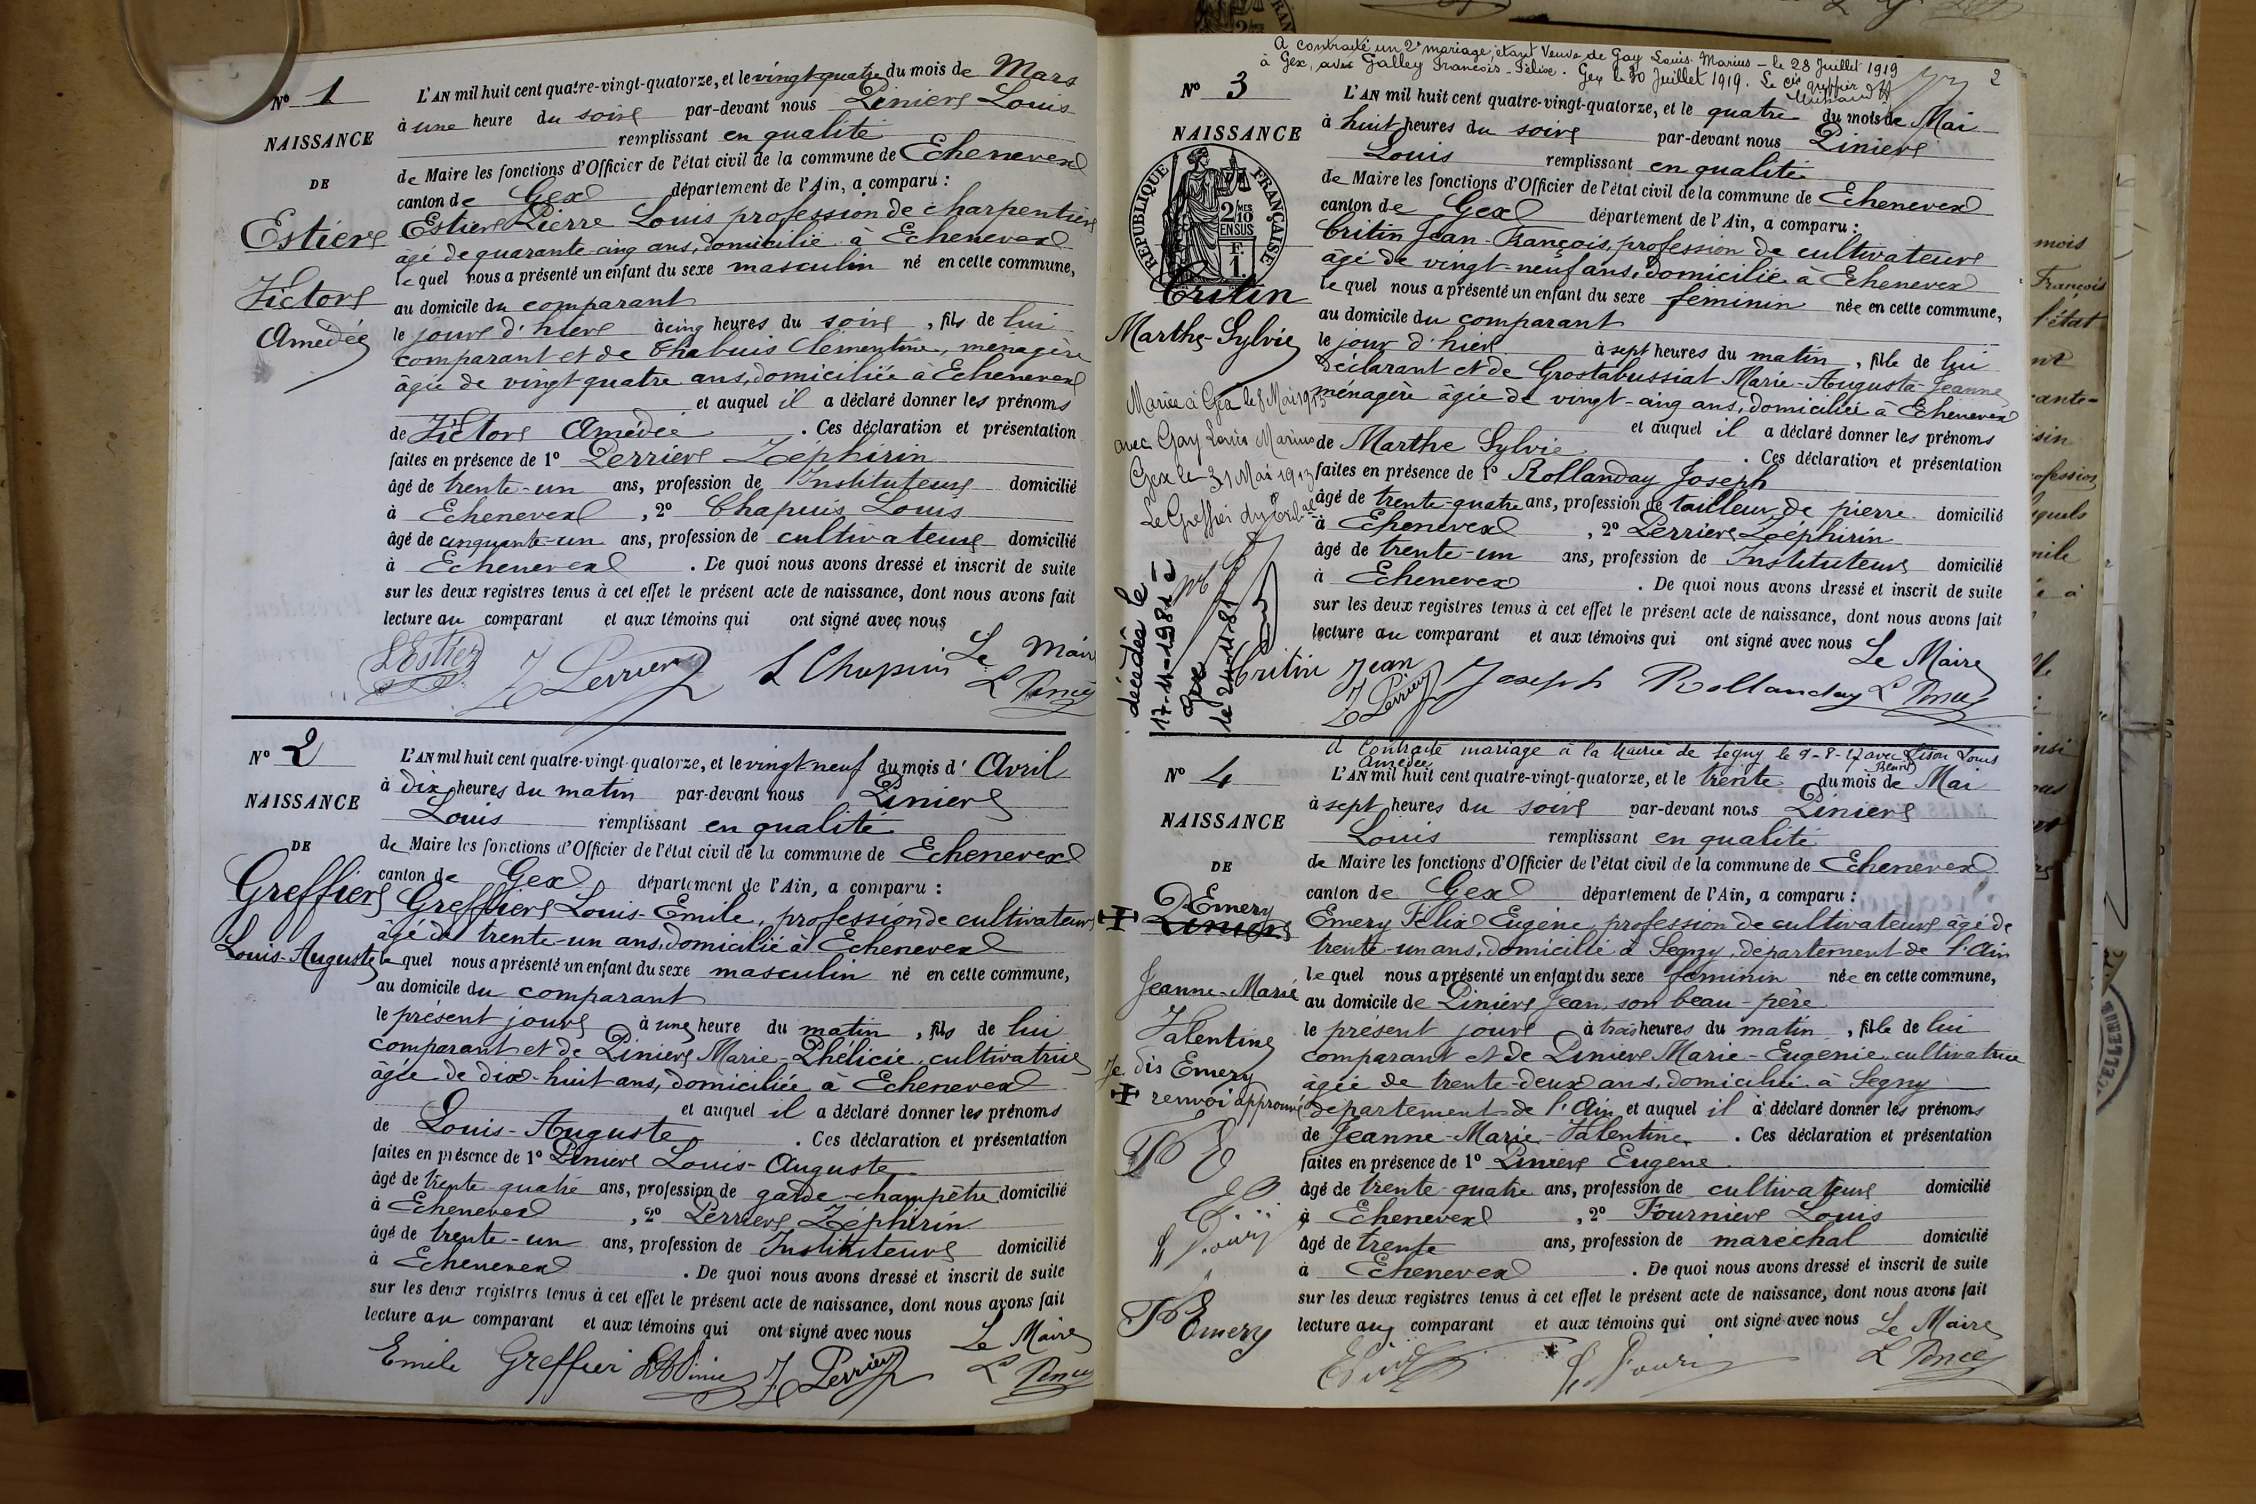 N° 1
NAISSANCE
DE
Estier
Victor
Amédée
L'AN mil huit cent quatre-vingt-quatorze, et le vingt-quatre du mois de Mars
à une heure du soir par-devant nous Pinier Louis
remplissant en qualité
de Maire les fonctions d'Officier de l'état civil de la commune de Echenevex
canton de Gex département de l'Ain, a comparu :
Estier Pierre Louis profession de charpentier
âgé de quarante cinq ans, domicilié à Echenevex
lequel nous a présenté un enfant du sexe masculin né en cette commune,
au domicile du comparant
le jour d'hier à cinq heures du soir, fils de lui
comparant et de Chabuis Clementine, ménagère
âgée de vingt quatre ans, domiciliée à Echenevex
et auquel il a déclaré donner les prénoms
de Victor Amédée . Ces déclaration et présentation
faites en présence de 1° Perrier Zéphirin
âgé de trente-un ans, profession de Instituteur domicilié
à Echenevex , 2° Chapuis Louis
âgé de cinquante-un ans, profession de cultivateur domicilié
à Echenevex . De quoi nous avons dressé et inscrit de suite
sur les deux registres tenus à cet effet le présent acte de naissance, dont nous avons fait
lecture au comparant et aux témoins qui ont signé avec nous
Le Maire
L Estier Z Perrier L Chapuis
N° 2
NAISSANCE
DE
Greffier
Louis-Auguste
L'AN mil huit cent quatre-vingt-quatorze, et le vingt-neuf du mois d'Avril
à dix heures du matin par-devant nous Pinier
Louis remplissant en qualité
de Maire les fonctions d'Officier de l'état civil de la commune de Echenevex
canton de Gex département de l'Ain, a comparu :
Greffier Louis-Emile, profession de cultivateur
âgé de trente-un ans, domicilié à Echenevex
lequel nous a présenté un enfant du sexe masculin né en cette commune,
au domicile du comparant
le présent jour à une heure du matin, fils de lui
comparant et de Pinier Marie-Phélicie, cultivatrice
âgée de dix-huit ans, domiciliée à Echenevex
et auquel il a déclaré donner les prénoms
de Louis-Auguste . Ces déclaration et présentation
faites en présence de 1° Pinier Louis-Auguste
âgé de trente quatre ans, profession de garde-champêtre domicilié
à Echenevex , 2° Perrier Zéphirin
âgé de trente-un ans, profession de Instituteur domicilié
à Echenevex . De quoi nous avons dressé et inscrit de suite
sur les deux registres tenus à cet effet le présent acte de naissance, dont nous avons fait
lecture au comparant et aux témoins qui ont signé avec nous
Le Maire
Emile Greffier Z Perrier
2
A contracté un 2e mariage, étant Veuve de Gay Louis Marius - le 28 Juillet 1919
à Gex, avec Galley François-Félix. Gex le 30 Juillet 1919. Le cis greffier
N° 3
NAISSANCE
RÉPUBLIQUE FRANÇAISE
2/10 MES
EN SUS
F.
1.
Critin
Marthe-Sylvie
Mariée à Gex le 8 Mai 1913
avec Gay Louis Marius
Gex le 31 Mai 1913
Le Greffier du tribal
décédée le
17-11-1981 à
Gex
le 24-11-81
L'AN mil huit cent quatre-vingt-quatorze, et le quatre du mois de Mai
à huit heures du soir par-devant nous Pinier
Louis remplissant en qualité
de Maire les fonctions d'Officier de l'état civil de la commune de Echenevex
canton de Gex département de l'Ain, a comparu :
Critin Jean-François, profession de cultivateur
âgé de vingt-neuf ans, domicilié à Echenevex
lequel nous a présenté un enfant du sexe féminin née en cette commune,
au domicile du comparant
le jour d'hier à sept heures du matin, fille de lui
déclarant et de Grostabussiat Marie-Augusta-Jeanne
ménagère âgée de vingt-cinq ans, domiciliée à Echenevex
et auquel il a déclaré donner les prénoms
de Marthe Sylvie . Ces déclaration et présentation
faites en présence de 1° Rollanday Joseph
âgé de trente-quatre ans, profession de tailleur de pierre domicilié
à Echenevex , 2° Perrier Zéphirin
âgé de trente-un ans, profession de Instituteur domicilié
à Echenevex . De quoi nous avons dressé et inscrit de suite
sur les deux registres tenus à cet effet le présent acte de naissance, dont nous avons fait
lecture au comparant et aux témoins qui ont signé avec nous
Le Maire
Critin Jean Joseph Rollanday
Z Perrier
A Contracté mariage à la Mairie de Segny le 9-8-17 avec Louis
Amédée
N° 4
NAISSANCE
DE
Emery
Pinier
Jeanne-Marie
Valentine
Je dis Emery
renvoi approuvé
Emery
L'AN mil huit cent quatre-vingt-quatorze, et le trente du mois de Mai
à sept heures du soir par-devant nous Pinier
Louis remplissant en qualité
de Maire les fonctions d'Officier de l'état civil de la commune de Echenevex
canton de Gex département de l'Ain, a comparu :
Emery Félix Eugène, profession de cultivateur âgé de
trente-un ans, domicilié à Segny, département de l'Ain
lequel nous a présenté un enfant du sexe féminin née en cette commune,
au domicile de Pinier Jean, son beau-père
le présent jour à trois heures du matin, fille de lui
comparant et de Pinier Marie-Eugenie, cultivatrice
âgée de trente-deux ans, domiciliée à Segny
département de l'Ain et auquel il a déclaré donner les prénoms
de Jeanne-Marie-Valentine . Ces déclaration et présentation
faites en présence de 1° Pinier Eugène
âgé de trente quatre ans, profession de cultivateur domicilié
à Echenevex , 2° Fournier Louis
âgé de trente ans, profession de maréchal domicilié
à Echenevex . De quoi nous avons dressé et inscrit de suite
sur les deux registres tenus à cet effet le présent acte de naissance, dont nous avons fait
lecture au comparant et aux témoins qui ont signé avec nous
Le Maire
mois
François
l'état